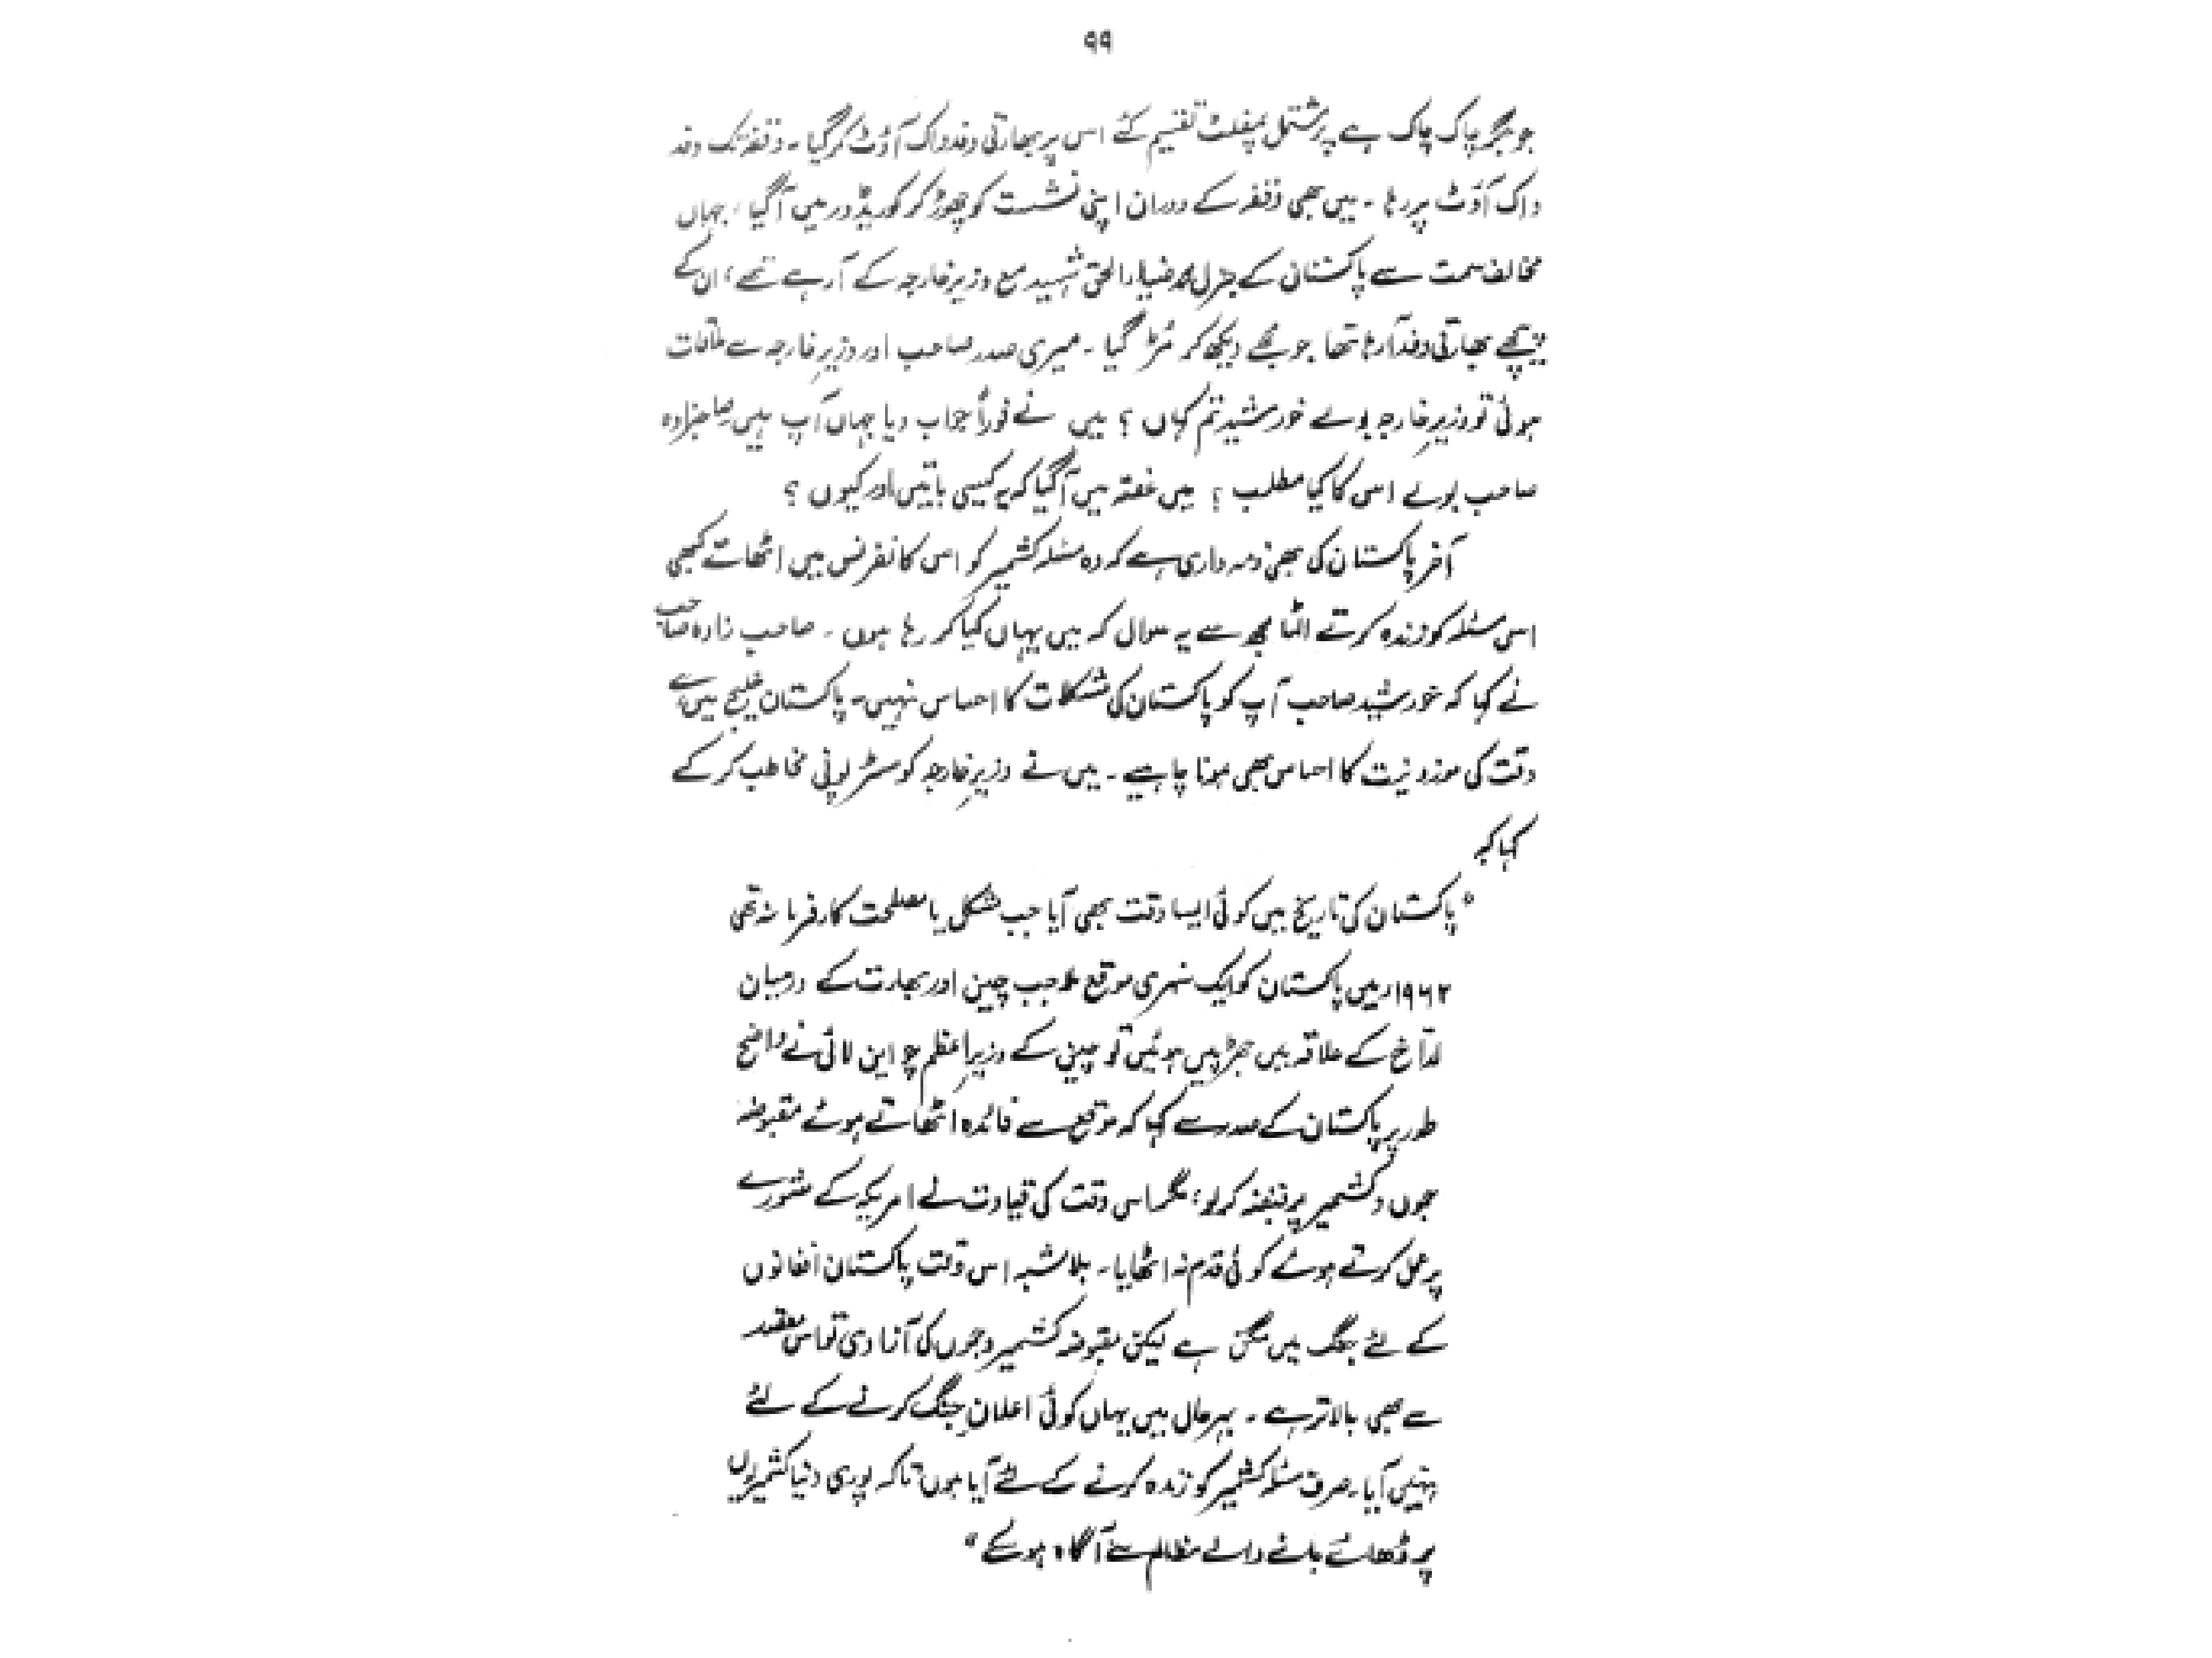 ۹۹
جو جگر چاک چاک ہے پر مشتمل پمفلٹ تقسیم کئے اس پر بھارتی وفد واک آؤٹ کر گیا۔ وقفہ تک وفد
واک آؤٹ پر رہا۔ میں بھی وقفہ کے دوران اپنی نشست کو چھوڑ کر کوریڈور میں آ گیا، جہاں
مخالف سمت سے پاکستان کے جنرل محمد ضیاء الحق شہید مع وزیر خارجہ کے آ رہے تھے، ان کے
پیچھے بھارتی وفد آ رہا تھا جو مجھے دیکھ کر مُڑ گیا۔ میری صدر صاحب اور وزیرِ خارجہ سے ملاقات
ہوئی تو وزیرِ خارجہ بولے خورشید تم کہاں؟ میں نے فوراً جواب دیا جہاں آپ ہیں صاحبزادہ
صاحب بولے اس کا کیا مطلب؟ میں غصّہ میں آ گیا کہ یہ کیسی باتیں اور کیوں؟
آخر پاکستان کی بھی ذمہ داری ہے کہ وہ مسئلہ کشمیر کو اس کانفرنس میں اٹھاتے کبھی
اس مسئلہ کو زندہ کرتے الٹا مجھ سے یہ سوال کہ میں یہاں کیا کر رہا ہوں۔ صاحب زادہ صاحب
نے کہا کہ خورشید صاحب آپ کو پاکستان کی مشکلات کا احساس نہیں۔ پاکستان خلیج میں ہے
وقت کی موزونیت کا احساس بھی ہونا چاہیے۔ میں نے وزیرِ خارجہ کو مخاطب کر کے
کہا کہ
"پاکستان کی تاریخ میں کوئی ایسا وقت بھی آیا جب مشکل یا مصلحت کارفرما نہ تھی
۱۹۶۲ء میں پاکستان کو ایک سنہری موقع ملا جب چین اور بھارت کے درمیان
لدّاخ کے علاقہ میں جھڑپیں ہوئیں تو چین کے وزیرِ اعظم چو این لائی نے واضح
طور پر پاکستان کے صدر سے کہا کہ موقع سے فائدہ اٹھاتے ہوئے مقبوضہ
جموں و کشمیر پر قبضہ کر لو، مگر اس وقت کی قیادت نے امریکہ کے مشورے
پر عمل کرتے ہوئے کوئی قدم نہ اٹھایا۔ بلاشبہ اس وقت پاکستان افغانوں
کے لئے جنگ میں مگن ہے لیکن مقبوضہ کشمیر و جموں کی آزادی تو اس مقصد
سے بھی بالاتر ہے۔ بہرحال میں یہاں کوئی اعلانِ جنگ کرنے کے لئے
نہیں آیا۔ صرف مسئلہ کشمیر کو زندہ کرنے کے لئے آیا ہوں تاکہ پوری دنیا کشمیریوں
پر ڈھائے جانے والے مظالم سے آگاہ ہو سکے"